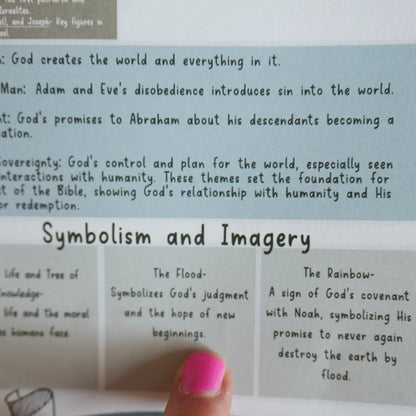 The first patriarch and
Israelites.
and Joseph- Key figures in
: God creates the world and everything in it.
Man: Adam and Eve's disobedience introduces sin into the world.
: God's promises to Abraham about his descendants becoming a
Sovereignty: God's control and plan for the world, especially seen
interactions with humanity. These themes set the foundation for
of the Bible, showing God's relationship with humanity and His
for redemption.
Symbolism and Imagery
Life and Tree of
Knowledge-
life and the moral
humans face.
The Flood-
Symbolizes God's judgment
and the hope of new
beginnings.
The Rainbow-
A sign of God's covenant
with Noah, symbolizing His
promise to never again
destroy the earth by
flood.